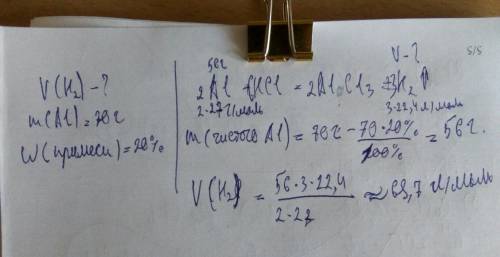 V(H₂) - ?
m(Al) = 70г
ω(примеси) = 20%
56г
V - ?
5/5
2Al + 6HCl = 2AlCl₃ + 3H₂↑
2·27г/моль
3·22,4л/моль
m(чистого Al) = 70г - 70·20% / 100% = 56г.
V(H₂) = 56·3·22,4 / 2·27 ≈ 69,7 л/моль